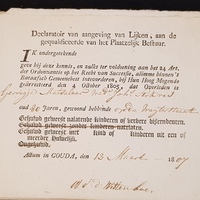 Declaratoir van aangeving van Lijken, aan de
gequalificeerde van het Plaatzelijk Bestuur.
IK ondergetekende
geve bij deze kennis, en zulks ter voldoening aan het 24 Art.
der Ordonnantie op het Recht van Successie, alomme binnen 't
Bataafsch Gemeenebest geintroduceerd, bij Hun Hoog Mogende
gearresteerd den 4 October 1805, dat Overleden is
oud 80 Jaren, gewoond hebbende op de
Gehuwd geweest nalatende kinderen of verdere bijstervenden.
Gehuwd geweest zonder kinderen natelaten.
Gehuwd geweest met kind of kinderen uit een of
meerder Huwelijk.
Ongehuwd.
Actum in GOUDA, den 13 Maart 1807